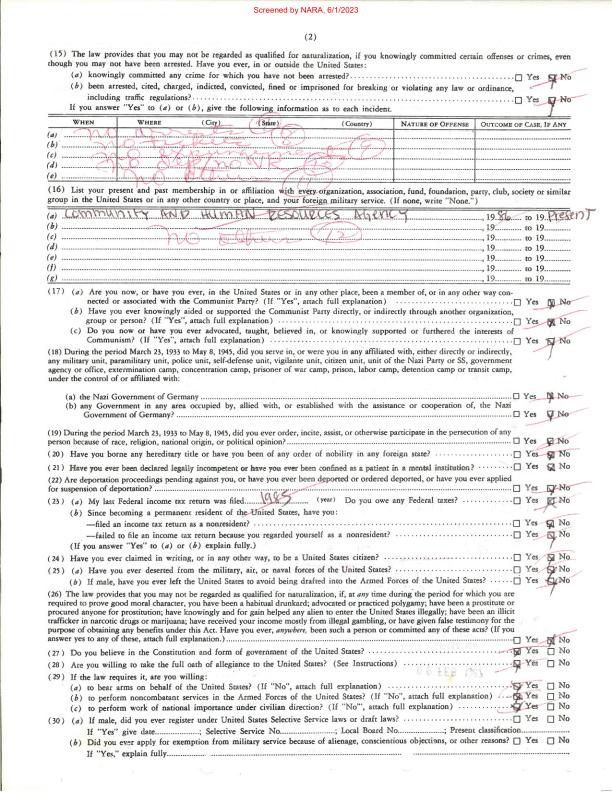 Screened by NARA, 6/1/2023
(2)
(15) The law provides that you may not be regarded as qualified for naturalization, if you knowingly committed certain offenses or crimes, even
though you may not have been arrested. Have you ever, in or outside the United States:
(a) knowingly committed any crime for which you have not been arrested? ☐ Yes ☒ No
(b) been arrested, cited, charged, indicted, convicted, fined or imprisoned for breaking or violating any law or ordinance,
including traffic regulations? ☐ Yes ☒ No
If you answer "Yes" to (a) or (b), give the following information as to each incident.
WHEN WHERE (City) (State) (Country) NATURE OF OFFENSE OUTCOME OF CASE, IF ANY
(a) no arrests
(b) no
(c)
(d) no
(e) no others
(16) List your present and past membership in or affiliation with every organization, association, fund, foundation, party, club, society or similar
group in the United States or in any other country or place, and your foreign military service. (If none, write "None.")
(a) COMMUNITY AND HUMAN RESOURCES AGENCY , 1986 to 19 PRESENT
(b) , 19 to 19
(c) no others (12) , 19 to 19
(d) , 19 to 19
(e) , 19 to 19
(f) , 19 to 19
(g) , 19 to 19
(17) (a) Are you now, or have you ever, in the United States or in any other place, been a member of, or in any other way con-
nected or associated with the Communist Party? (If "Yes", attach full explanation) ☐ Yes ☒ No
(b) Have you ever knowingly aided or supported the Communist Party directly, or indirectly through another organization,
group or person? (If "Yes", attach full explanation) ☐ Yes ☒ No
(c) Do you now or have you ever advocated, taught, believed in, or knowingly supported or furthered the interests of
Communism? (If "Yes", attach full explanation) ☐ Yes ☒ No
(18) During the period March 23, 1933 to May 8, 1945, did you serve in, or were you in any affiliated with, either directly or indirectly,
any military unit, paramilitary unit, police unit, self-defense unit, vigilante unit, citizen unit, unit of the Nazi Party or SS, government
agency or office, extermination camp, concentration camp, prisoner of war camp, prison, labor camp, detention camp or transit camp,
under the control of or affiliated with:
(a) the Nazi Government of Germany ☐ Yes ☒ No
(b) any Government in any area occupied by, allied with, or established with the assistance or cooperation of, the Nazi
Government of Germany? ☐ Yes ☒ No
(19) During the period March 23, 1933 to May 8, 1945, did you ever order, incite, assist, or otherwise participate in the persecution of any
person because of race, religion, national origin, or political opinion? ☐ Yes ☒ No
(20) Have you borne any hereditary title or have you been of any order of nobility in any foreign state? ☐ Yes ☒ No
(21) Have you ever been declared legally incompetent or have you ever been confined as a patient in a mental institution? ☐ Yes ☒ No
(22) Are deportation proceedings pending against you, or have you ever been deported or ordered deported, or have you ever applied
for suspension of deportation? ☐ Yes ☒ No
(23) (a) My last Federal income tax return was filed 1985 (year) Do you owe any Federal taxes? ☐ Yes ☒ No
(b) Since becoming a permanent resident of the United States, have you:
—filed an income tax return as a nonresident? ☐ Yes ☒ No
—failed to file an income tax return because you regarded yourself as a nonresident? ☐ Yes ☒ No
(If you answer "Yes" to (a) or (b) explain fully.)
(24) Have you ever claimed in writing, or in any other way, to be a United States citizen? ☐ Yes ☒ No
(25) (a) Have you ever deserted from the military, air, or naval forces of the United States? ☐ Yes ☒ No
(b) If male, have you ever left the United States to avoid being drafted into the Armed Forces of the United States? ☐ Yes ☒ No
(26) The law provides that you may not be regarded as qualified for naturalization, if, at any time during the period for which you are
required to prove good moral character, you have been a habitual drunkard; advocated or practiced polygamy; have been a prostitute or
procured anyone for prostitution; have knowingly and for gain helped any alien to enter the United States illegally; have been an illicit
trafficker in narcotic drugs or marijuana; have received your income mostly from illegal gambling, or have given false testimony for the
purpose of obtaining any benefits under this Act. Have you ever, anywhere, been such a person or committed any of these acts? (If you
answer yes to any of these, attach full explanation.) ☐ Yes ☒ No
(27) Do you believe in the Constitution and form of government of the United States? ☒ Yes ☐ No
(28) Are you willing to take the full oath of allegiance to the United States? (See Instructions) ☒ Yes ☐ No
(29) If the law requires it, are you willing:
(a) to bear arms on behalf of the United States? (If "No", attach full explanation) ☒ Yes ☐ No
(b) to perform noncombatant services in the Armed Forces of the United States? (If "No", attach full explanation) ☒ Yes ☐ No
(c) to perform work of national importance under civilian direction? (If "No", attach full explanation) ☒ Yes ☐ No
(30) (a) If male, did you ever register under United States Selective Service laws or draft laws? ☐ Yes ☐ No
If "Yes" give date ; Selective Service No. ; Local Board No. ; Present classification
(b) Did you ever apply for exemption from military service because of alienage, conscientious objections, or other reasons? ☐ Yes ☐ No
If "Yes," explain fully